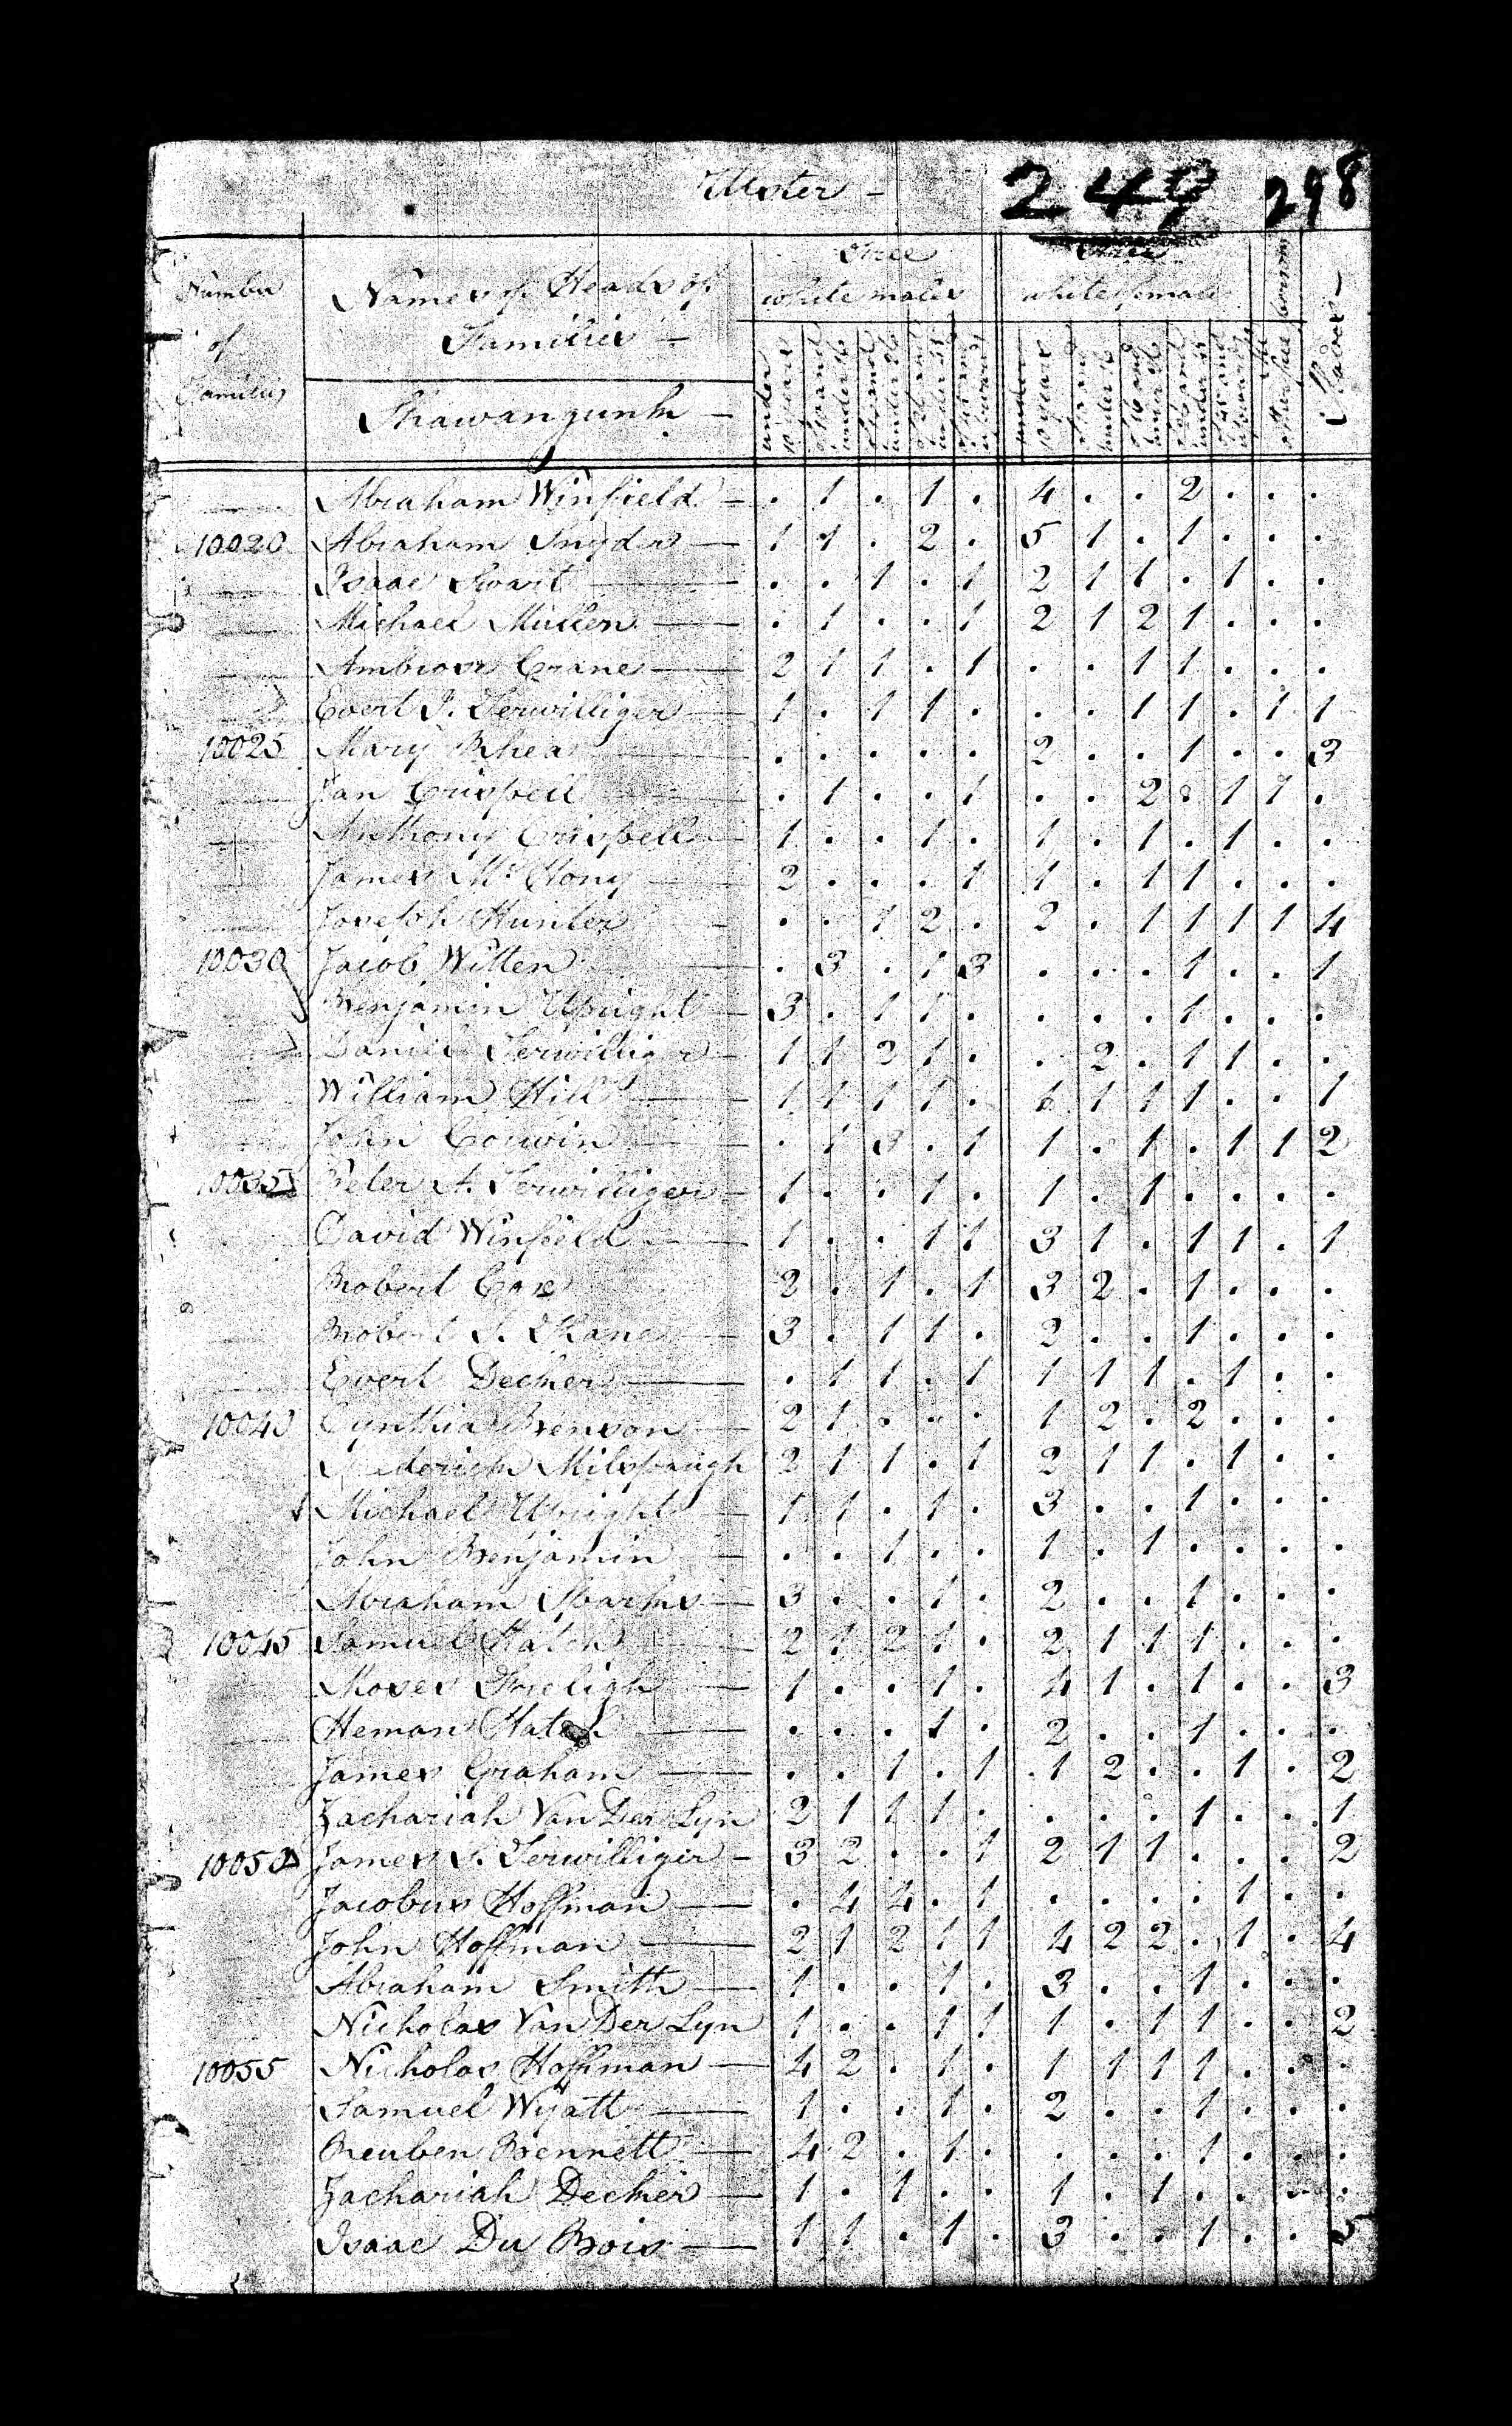 Ulster -
249 298
Number of Families
Names of Heads of Families -
Shawangunk -
Free white males
Free white females
under 10 years
of 10 and under 16
of 16 and under 26
of 26 and under 45
of 45 and upwards
under 10 years
of 10 and under 16
of 16 and under 26
of 26 and under 45
of 45 and upwards
All other free persons
Slaves -
Abraham Winfield - . 1 . 1 . 4 . . 2 . . .
10020 Abraham Snyder - 1 1 . 2 . 5 1 . 1 . . .
Isaac Swart - . . 1 . 1 2 1 1 . 1 . .
Michael Mullen - . 1 . . 1 2 1 2 1 . . .
Ambrose Crane - 2 1 1 . 1 . . 1 1 . . .
Evert J. Terwilliger - 1 . 1 1 . . . 1 1 . 1 1
10025 Mary Rhea . . . . . 2 . . 1 . . 3
Jan Crispell . 1 . . 1 . . 2 . 1 1 .
Anthony Crispell 1 . . 1 . 1 . 1 . 1 . .
James Mc Hony - 2 . . . 1 1 . 1 1 . . .
Joseph Hunter - . . 1 2 . 2 . 1 1 1 1 4
10030 Jacob Witten - . 3 . 1 3 . . . 1 . . 1
Benjamin Upright - 3 . 1 1 . . . . 1 . . .
Daniel Terwilliger - 1 1 2 1 . . 2 . 1 1 . .
William Hill - 1 1 1 1 . 6 1 1 1 . . 1
John Couwin - . 1 3 . 1 1 . 1 . 1 1 2
10035 Peter A. Terwilliger - 1 . . 1 . 1 . 1 . . . .
David Winfield - 1 . . 1 1 3 1 . 1 1 . 1
Robert Cox 2 . 1 . 1 3 2 . 1 . . .
Robert S. Kane - 3 . 1 1 . 2 . . 1 . . .
Evert Decker - . 1 1 . 1 1 1 1 . 1 . .
10040 Cynthia Brenson - 2 1 . . . 1 2 . 2 . . .
Frederick Milspaugh 2 1 1 . 1 2 1 1 . 1 . .
Michael Upright - 1 1 . 1 . 3 . . 1 . . .
John Benjamin - . . 1 . . 1 . 1 . . . .
Abraham Sparks - 3 . . 1 . 2 . . 1 . . .
10045 Samuel Hatch 2 1 2 1 . 2 1 1 1 . . .
Moses Freligh - 1 . . 1 . 4 1 . 1 . . 3
Heman Hatch - . . . 1 . 2 . . 1 . . .
James Graham - . . 1 . 1 1 2 . . 1 . 2
Zachariah Van Der Lyn 2 1 1 1 . . . . 1 . . 1
10050 James S. Terwilliger - 3 2 . . 1 2 1 1 . . . 2
Jacobus Hoffman - . 4 4 . 1 . . . . 1 . .
John Hoffman - 2 1 2 1 1 4 2 2 . 1 . 4
Abraham Smith - 1 . . 1 . 3 . . 1 . . .
Nicholas Van Der Lyn 1 . . 1 1 1 . 1 1 . . 2
10055 Nicholas Hoffman - 4 2 . 1 . 1 1 1 1 . . .
Samuel Wyatt - 1 . . 1 . 2 . . 1 . . .
Reuben Bennett - 4 2 . 1 . . . . 1 . . .
Zachariah Decker - 1 . 1 . . 1 . 1 . . . .
Isaac Du Bois - 1 1 . 1 . 3 . . 1 . . 5